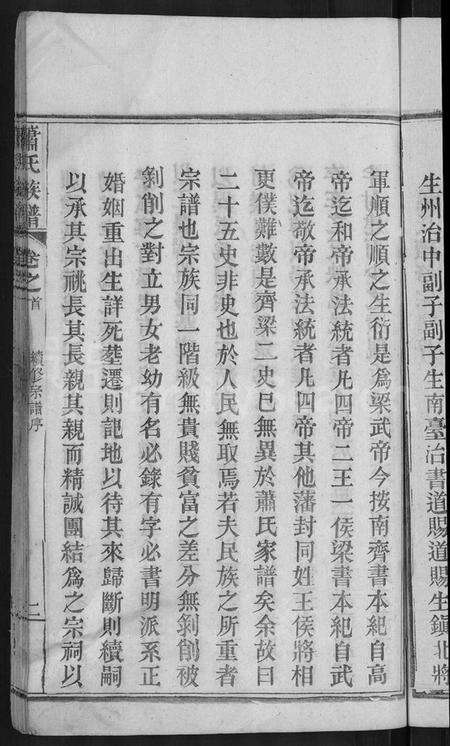 生州治中副子副子生南臺治書道賜道賜生鎮北將
軍順之順之生衍是爲梁武帝今按南齊書本紀自高
帝迄和帝承法統者凡四帝二王一侯梁書本紀自武
帝迄敬帝承法統者凡四帝其他藩封同姓王侯將相
更僕難數是齊梁二史已無異於蕭氏家譜矣余故曰
二十五史非史也於人民無取焉若夫民族之所重者
宗譜也宗族同一階級無貴賤貧富之差分無剝削被
剝削之對立男女老幼有名必錄有字必書明派系正
婚姻重出生詳死塟遷則誌地以待其來歸斷則續嗣
以承其宗祧長其長親其親而精誠團結爲之宗祠以
蕭氏族譜
卷之首
續修宗譜序
二